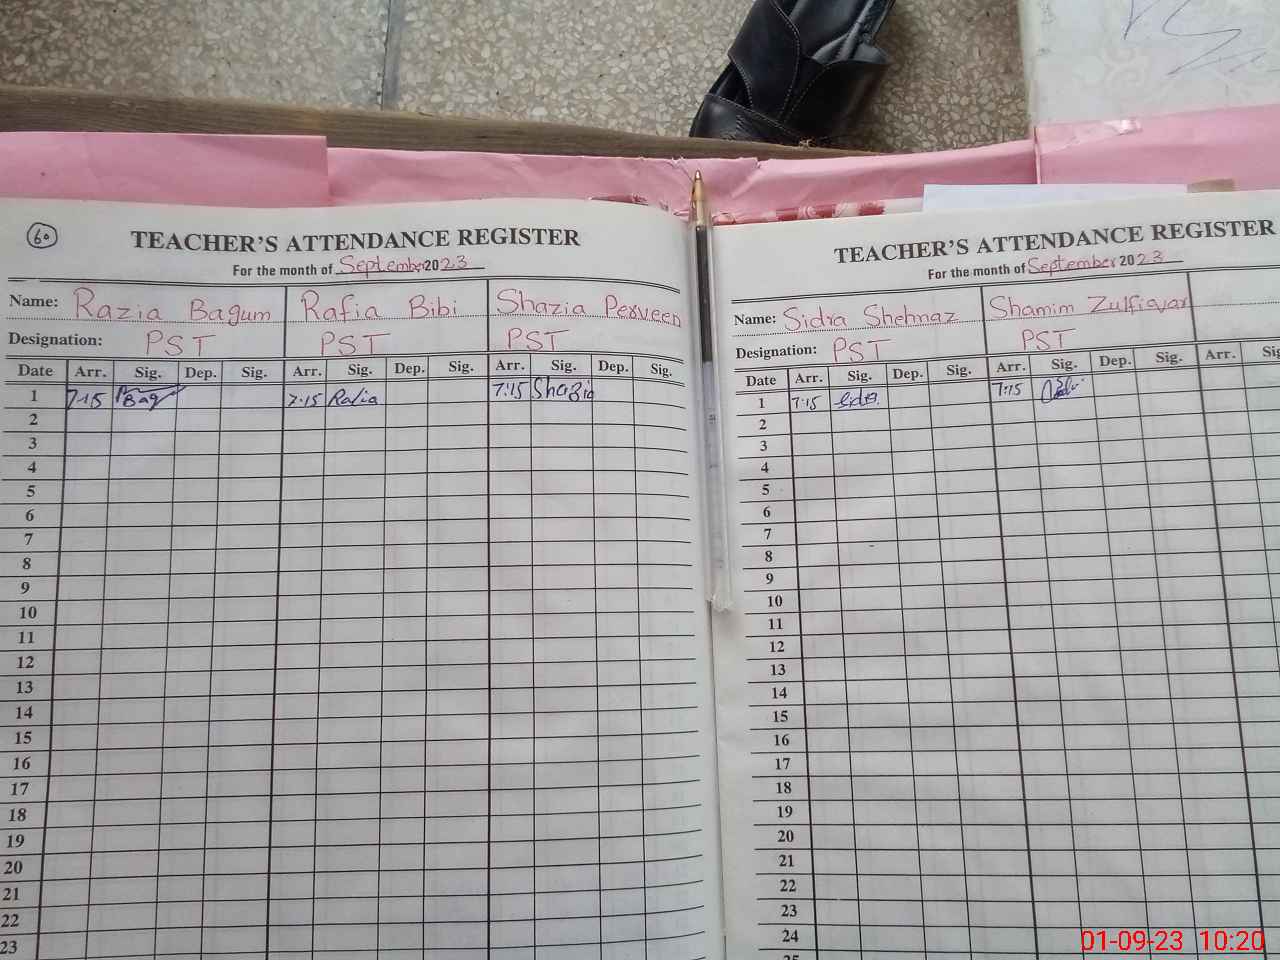 60
TEACHER'S ATTENDANCE REGISTER
For the month of September 2023
Name: Razia Bagum Rafia Bibi Shazia Perveen
Designation: PST PST PST
Date Arr. Sig. Dep. Sig. Arr. Sig. Dep. Sig. Arr. Sig. Dep. Sig.
1 7:15 Bag 7:15 Rafia 7:15 Shazia
2
3
4
5
6
7
8
9
10
11
12
13
14
15
16
17
18
19
20
21
22
23
TEACHER'S ATTENDANCE REGISTER
For the month of September 2023
Name: Sidra Shehnaz Shamim Zulfiqar
Designation: PST PST
Date Arr. Sig. Dep. Sig. Arr. Sig. Dep. Sig. Arr.
1 7:15 Sidra 7:15
2
3
4
5
6
7
8
9
10
11
12
13
14
15
16
17
18
19
20
21
22
23
24
01-09-23 10:20